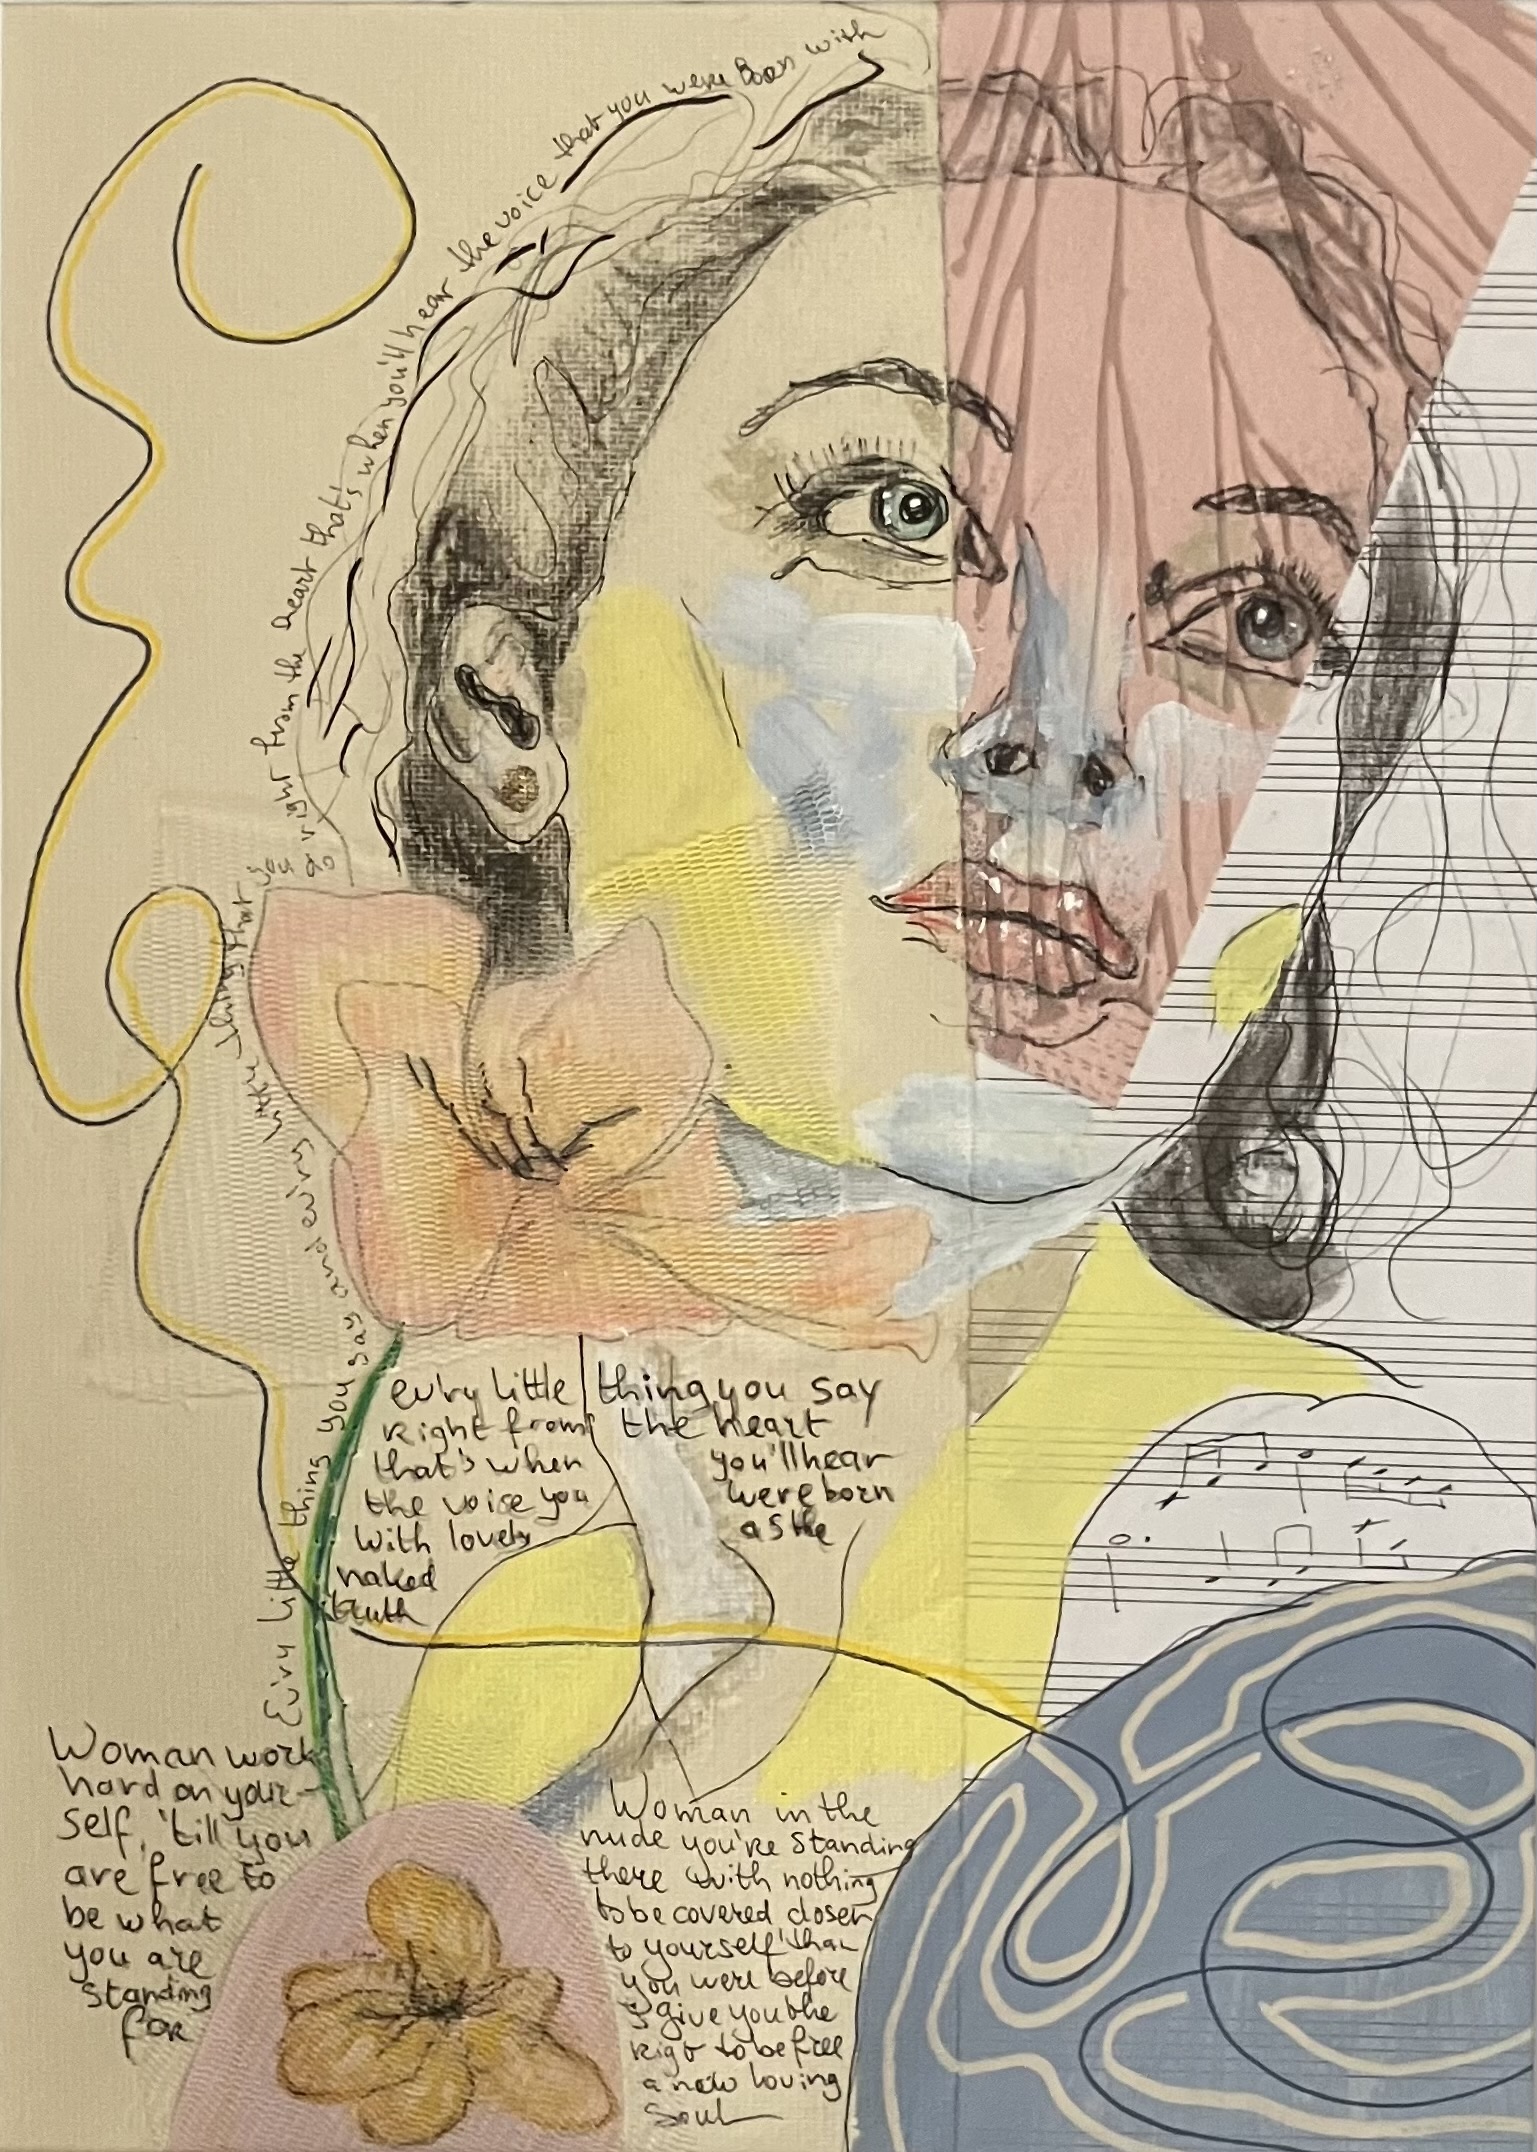 Ev'ry little thing you say and ev'ry little thing that you do right from the heart that's when you'll hear the voice that you were Born with
ev'ry little thing you say
Right from the heart
that's when you'll hear
the voice you were born
with lovely as the
naked
truth
Woman work
hard on your-
self, 'till you
are free to
be what
you are
standing
for
Woman in the
nude you're standing
there with nothing
to be covered closer
to yourself than
you were before
give you the
to be free
a new loving
Soul